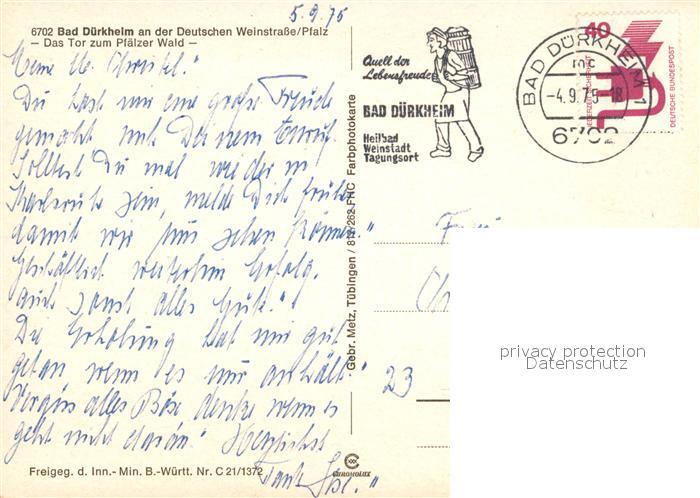 5.9.75
6702 Bad Dürkheim an der Deutschen Weinstraße/Pfalz
— Das Tor zum Pfälzer Wald —
Meine lb. Christel!"
Du hast mir eine große Freude
gemacht mit Deinem Anruf.
Solltest Du mal wieder in
Karlsruhe sein, melde Dich früher
damit wir uns sehen können."
Geschäftlich weiterhin Erfolg.
auch sonst alles Gute."!
Die Erholung hat mir gut
getan wenn es nur anhält"
Vergiss alles Böse denke wenn es
geht nicht daran. Herzlichst
Tante
Freigeg. d. Inn.- Min. B.-Württ. Nr. C 21/1372
CHROMOLUX
Gebr. Metz, Tübingen / 811/262 FHC Farbphotokarte
Quell der
Lebensfreude
BAD DÜRKHEIM
Heilbad
Weinstadt
Tagungsort
BAD DÜRKHEIM 1
mc
-4.9.75-18
6702
40
DEUTSCHE BUNDESPOST
23
privacy protection
Datenschutz